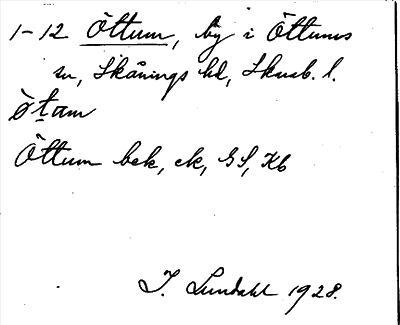 1-12 Öttum, by i Öttums
sn, Skånings hd, Skarab. l.
öt̲am
Öttum bek, ek, GS, Kb
I. Lundahl 1928.